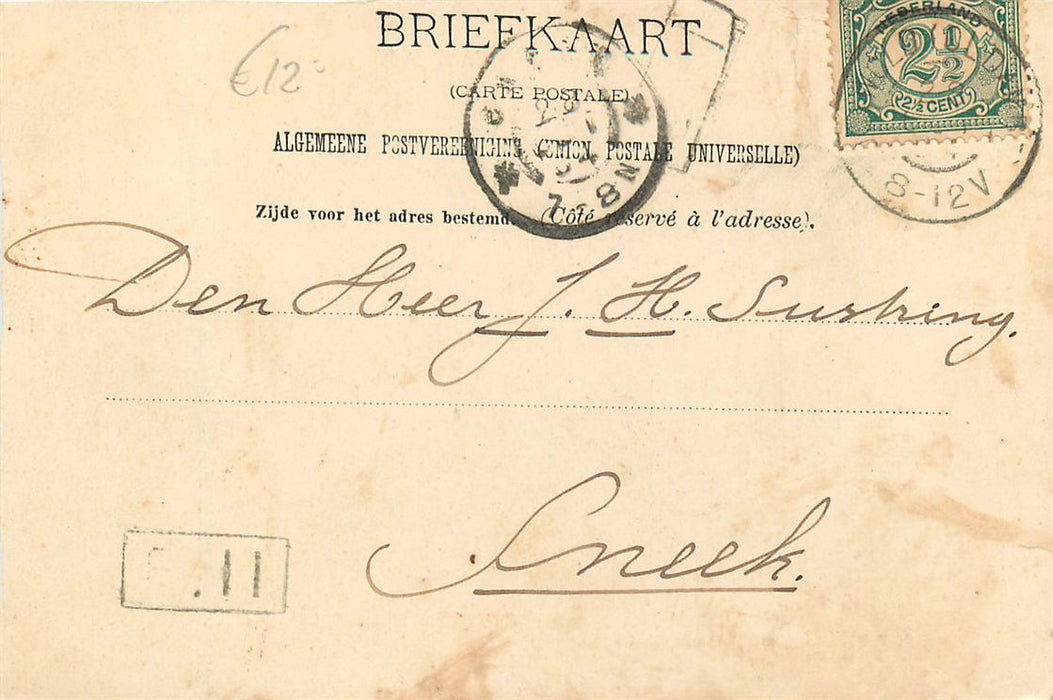 BRIEFKAART
€12-
(CARTE POSTALE)
ALGEMEENE POSTVEREENIGING (UNION POSTALE UNIVERSELLE)
Zijde voor het adres bestemd. (Côté réservé à l'adresse).
NEDERLAND
2½
2½ CENT
8-12V
7-8N
Den Heer J. H. Sustring.
Sneek.
.II